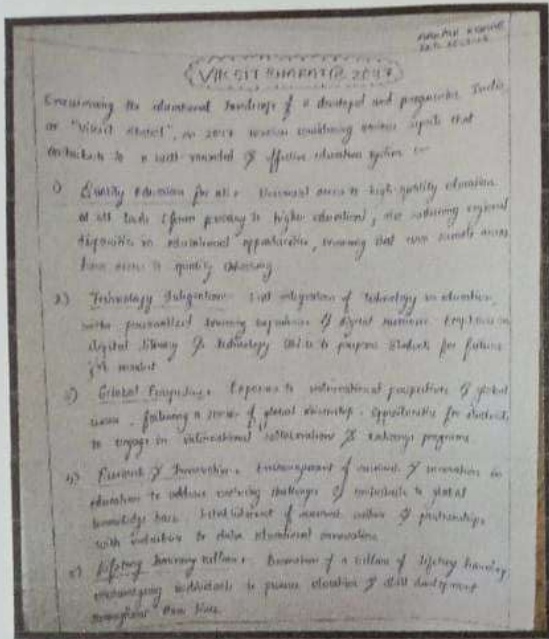 VIKSIT BHARAT@ 2047
Envisioning the educational landscape of a developed and progressive India,
or "Viksit Bharat", in 2047 involves considering various aspects that
contribute to a well-rounded & effective education system :-
1) Quality Education for all : Universal access to high-quality education
at all levels (from primary to higher education), also reducing regional
disparities in educational opportunities, ensuring that even remote areas
have access to quality
2.) Technology Integration : integration of technology in education,
with personalized learning experiences & digital resources. Emphasis on
digital literacy & technology skills to prepare students for future
job market
3) Global Perspective : Exposure to international perspectives & global
issues, fostering a sense of global citizenship. Opportunities for students
to engage in international collaborations & exchange programs.
4) Research & Innovation : Encouragement of research & innovation in
education to address evolving challenges & contribute to global
knowledge base. Establishment of research centers & partnerships
with industries to drive educational innovation.
5) Lifelong Learning Culture : Promotion of a culture of lifelong learning
encouraging individuals to pursue education & skill development
throughout their lives.